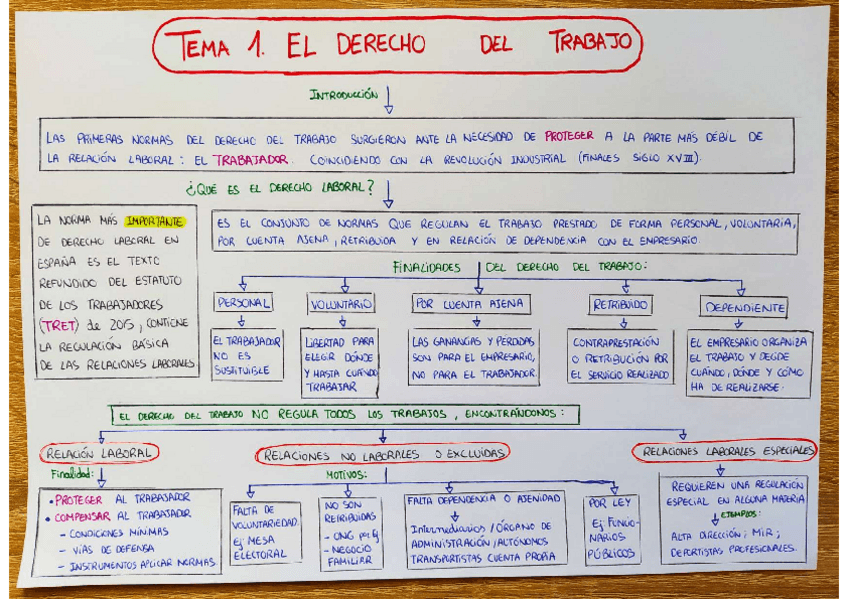 TEMA 1. EL DERECHO DEL TRABAJO
INTRODUCCIÓN
LAS PRIMERAS NORMAS DEL DERECHO DEL TRABAJO SURGIERON ANTE LA NECESIDAD DE PROTEGER A LA PARTE MÁS DÉBIL DE
LA RELACIÓN LABORAL: EL TRABAJADOR. COINCIDIENDO CON LA REVOLUCIÓN INDUSTRIAL (FINALES SIGLO XVIII).
¿QUÉ ES EL DERECHO LABORAL?
LA NORMA MÁS IMPORTANTE
DE DERECHO LABORAL EN
ESPAÑA ES EL TEXTO
REFUNDIDO DEL ESTATUTO
DE LOS TRABAJADORES
(TRET) de 2015, CONTIENE
LA REGULACIÓN BÁSICA
DE LAS RELACIONES LABORALES
ES EL CONJUNTO DE NORMAS QUE REGULAN EL TRABAJO PRESTADO DE FORMA PERSONAL, VOLUNTARIA,
POR CUENTA AJENA, RETRIBUIDA Y EN RELACIÓN DE DEPENDENCIA CON EL EMPRESARIO.
FINALIDADES DEL DERECHO DEL TRABAJO:
PERSONAL
EL TRABAJADOR
NO ES
SUSTITUIBLE
VOLUNTARIO
LIBERTAD PARA
ELEGIR DÓNDE
Y HASTA CUÁNDO
TRABAJAR
POR CUENTA AJENA
LAS GANANCIAS Y PERDIDAS
SON PARA EL EMPRESARIO,
NO PARA EL TRABAJADOR.
RETRIBUIDO
CONTRAPRESTACIÓN
O RETRIBUCIÓN POR
EL SERVICIO REALIZADO
DEPENDIENTE
EL EMPRESARIO ORGANIZA
EL TRABAJO Y DECIDE
CUÁNDO, DÓNDE Y CÓMO
HA DE REALIZARSE.
EL DERECHO DEL TRABAJO NO REGULA TODOS LOS TRABAJOS, ENCONTRÁNDONOS:
RELACIÓN LABORAL
Finalidad:
• PROTEGER AL TRABAJADOR
• COMPENSAR AL TRABAJADOR
- CONDICIONES MÍNIMAS
- VÍAS DE DEFENSA
- INSTRUMENTOS APLICAR NORMAS
RELACIONES NO LABORALES O EXCLUÍDAS
MOTIVOS:
FALTA DE
VOLUNTARIEDAD.
Ej MESA
ELECTORAL
NO SON
RETRIBUIDAS
- ONG por Ej
- NEGOCIO
FAMILIAR
FALTA DEPENDENCIA O AJENIDAD
Intermediarios / ÓRGANO DE
ADMINISTRACIÓN / AUTÓNOMOS
TRANSPORTISTAS CUENTA PROPIA
POR LEY
Ej FUNCIO-
NARIOS
PÚBLICOS
RELACIONES LABORALES ESPECIALES
REQUIEREN UNA REGULACIÓN
ESPECIAL EN ALGUNA MATERIA
EJEMPLOS:
ALTA DIRECCIÓN; MIR;
DEPORTISTAS PROFESIONALES.